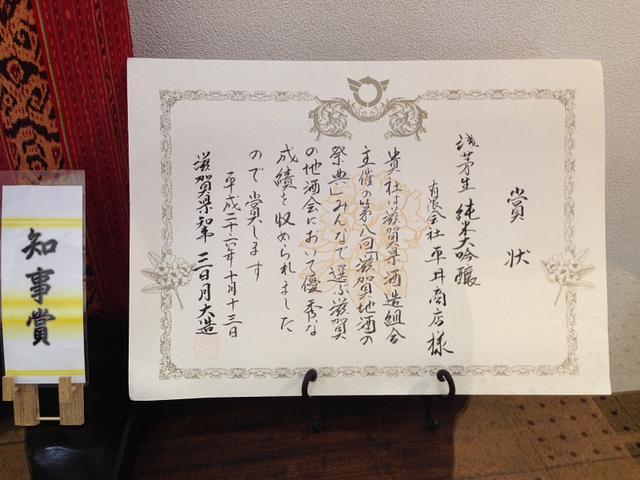 賞状
浅茅生 純米大吟醸
有限会社 平井商店様
貴社は滋賀県酒造組合
主催の第八回「滋賀地酒の
祭典」みんなで選ぶ滋賀
の地酒会において優秀な
成績を収められました
ので賞します
平成二十六年十月十三日
滋賀県知事 三日月大造
知事賞